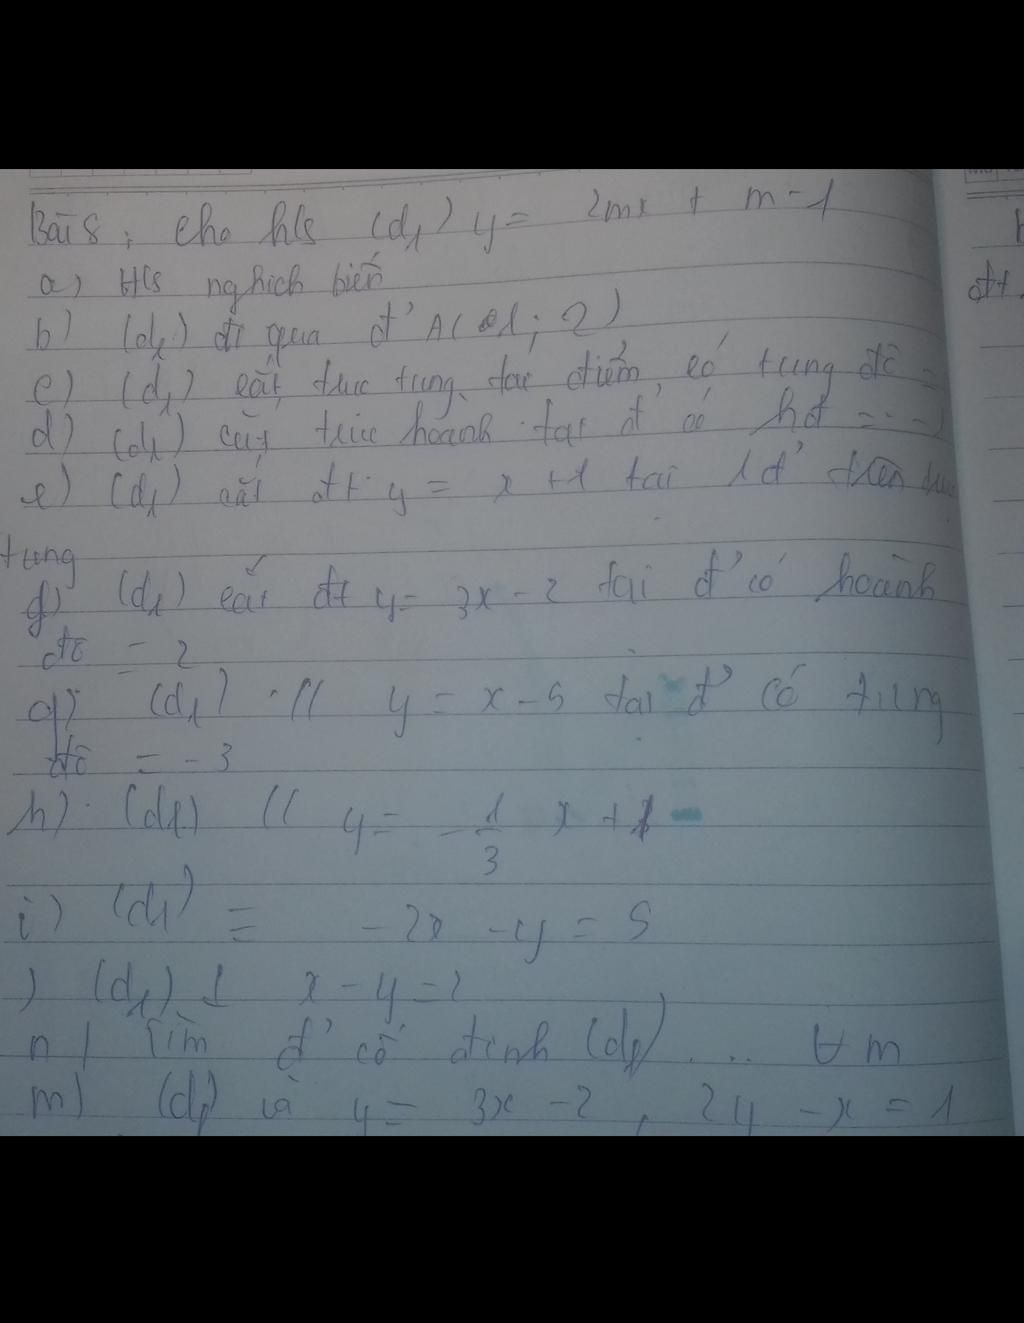 Bài 8 : cho h/s (d₁) y = 2mx + m - 1
a) H/s nghịch biến
b) (d₁) đi qua đ' A( 1 ; 2)
c) (d₁) cắt trục tung tại điểm có tung độ =
d) (d₁) cắt trục hoành tại đ' có hđ =
e) (d₁) cắt đt y = x + 1 tại 1 đ' trên
tung
f) (d₁) cắt đt y = 3x - 2 tại đ' có hoành
độ = 2
g) (d₁) // y = x - 5 tại đ' có tung
độ = -3
h) (d₁) // y = - 1/3 x + 1
i) (d₁) ≡ - 2x - y = 5
) (d₁) ⊥ x - y = 2
n) Tìm đ' cố định (d₁) ... ∀ m
m) (d₁) và y = 3x - 2 , 2y - x = 1